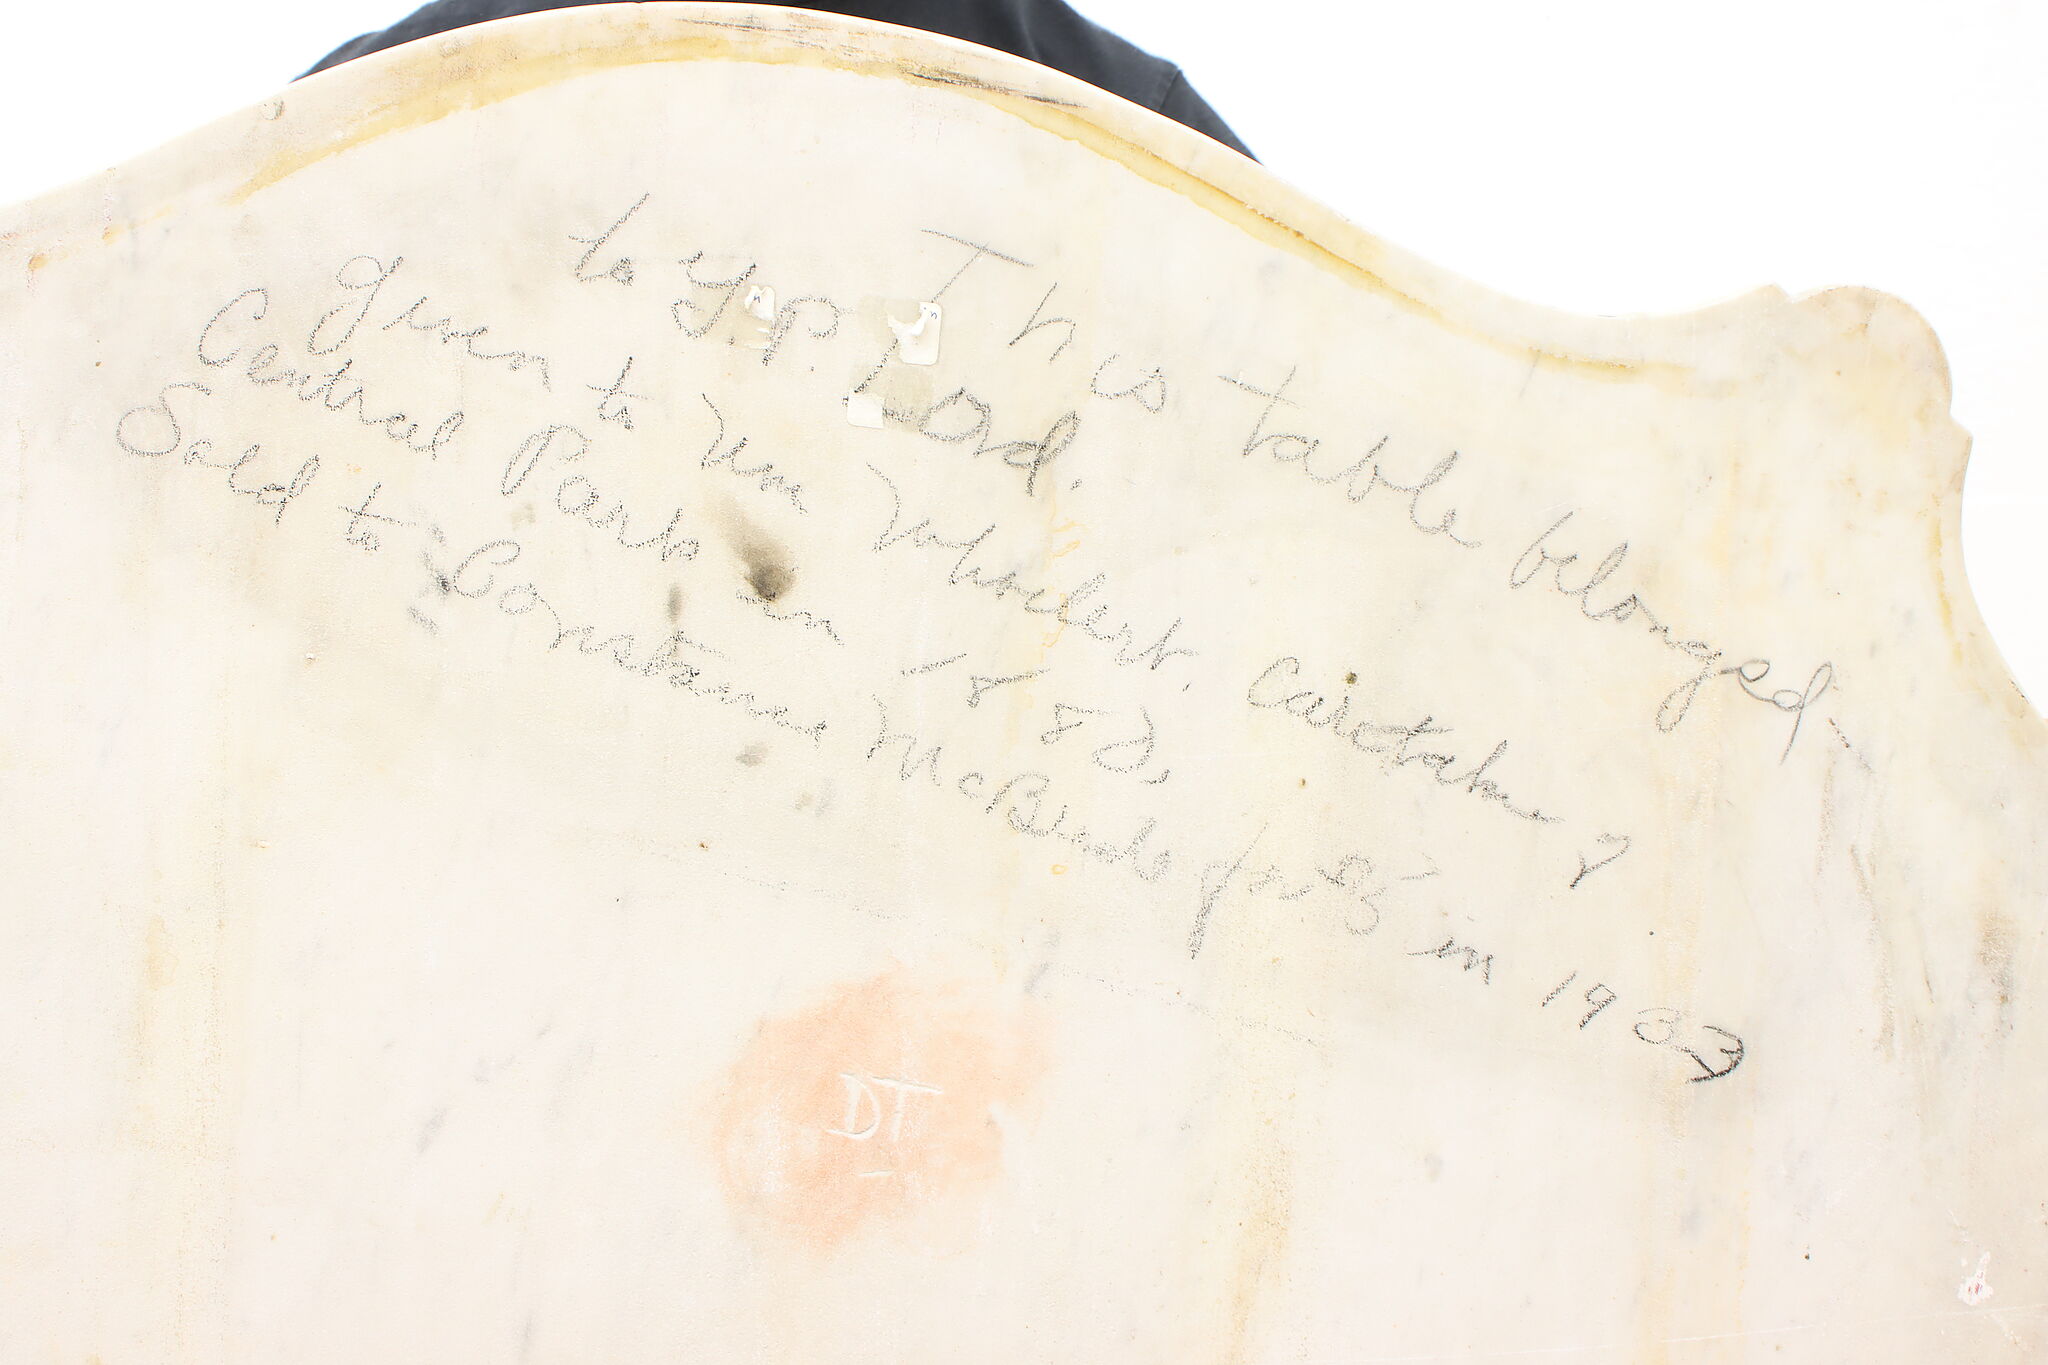 This table belonged
to J.P. Lord.
Given to Wm Caretaker of
Central Park in 1882,
Sold to Constance McBride for in 1937
DT